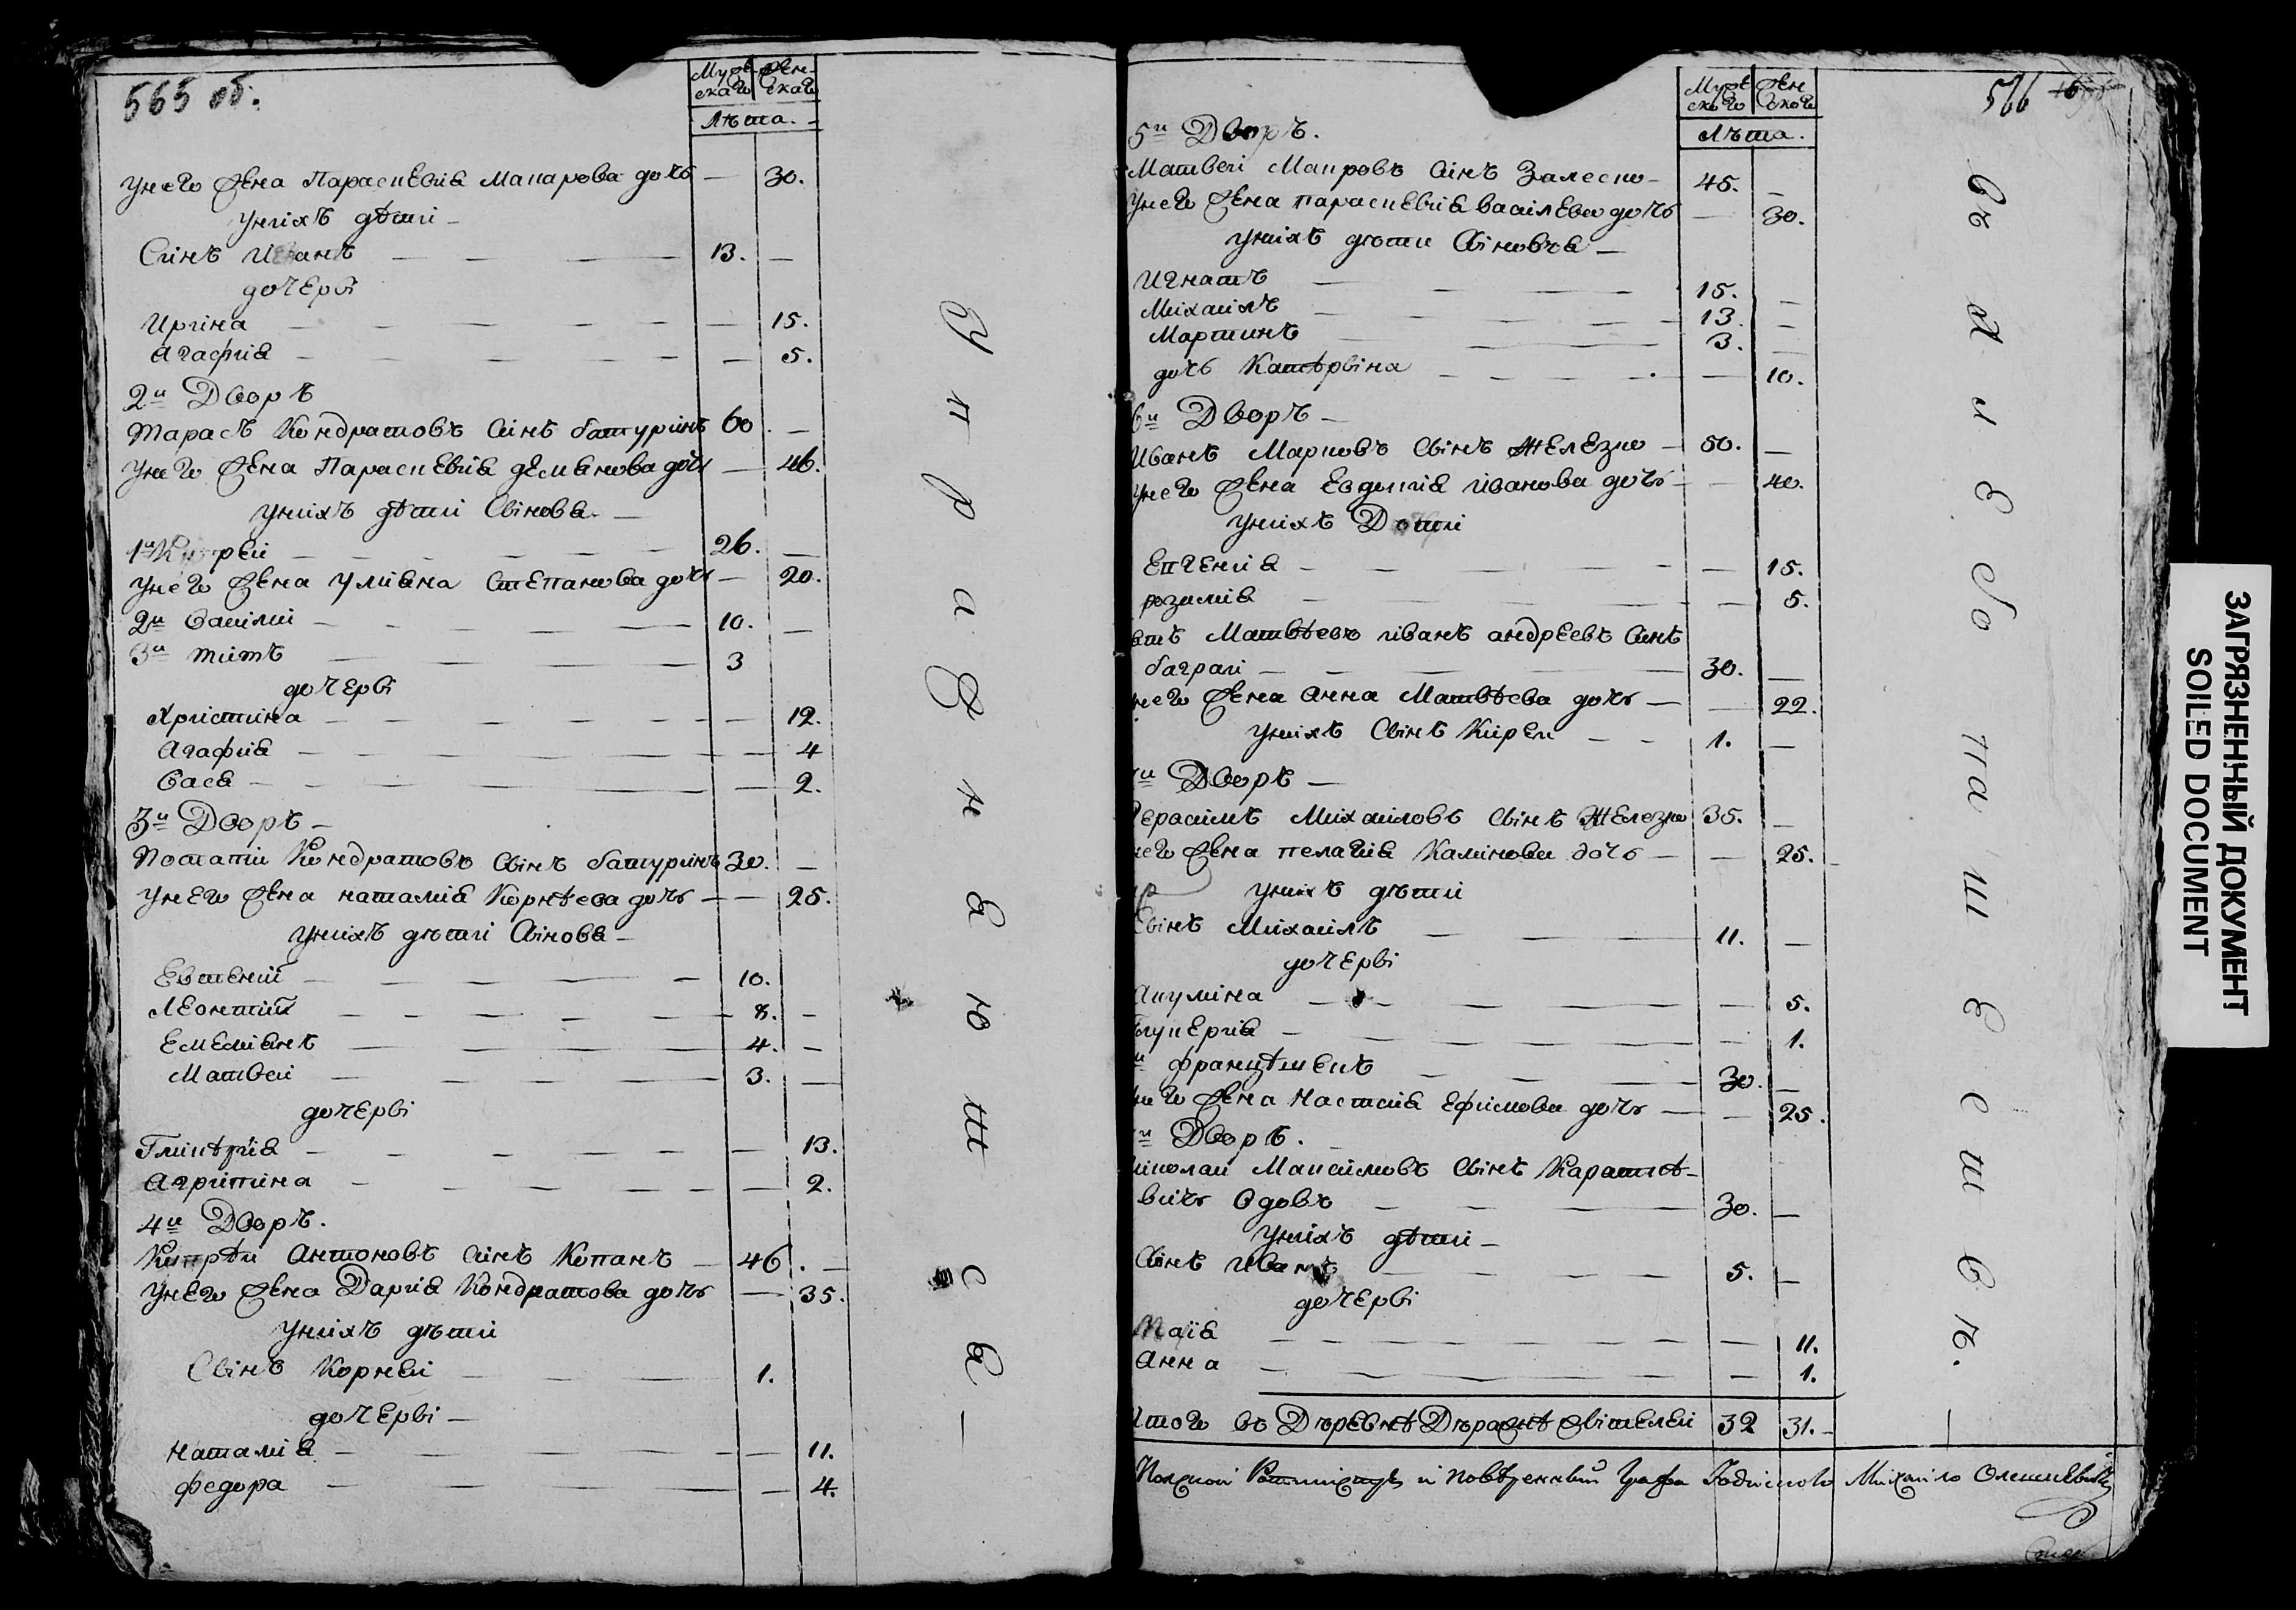 565 об.
Муже
скаго
Жен
скаго
Лѣта.
Унего Жена Параскевия Макарова дочь — 30.
Унихъ дѣти
Синъ Иванъ 13. —
дочери
Ирина — 15.
Агафия — 5.
2й Дворъ
Тарасъ Кондратовъ Синъ батуринъ 60. —
Унего Жена Параскевия демянова дочь — 46.
Унихъ дѣти Свінова
1й 26. —
Унего Жена Улияна Степанова дочь — 20.
2й Василий 10. —
3й Титъ 3
дочерві
Христина — 12.
Агафия — 4
Вася — 2.
3й Дворъ
Потапій Кондратовъ Свінъ батуринъ 30. —
Унего Жена наталия Корнѣева дочь — 25.
Унихъ дѣти Свінова
Евтений 10.
Леонтий 8. —
Емелиянъ 4. —
Матвеи 3. —
дочерві
Гликѣрия — 13.
Агрипина — 2.
4й Дворъ.
Антоновъ Синъ Копанъ 46. —
Унего Жена Дария Кондратова дочь — 35.
Унихъ дѣти
Свінъ Корнеи 1.
дочерві
Наталия — 11.
федора — 4.
Упражняются —
566
Муже
скаго
Жен
скаго
Лѣта.
5й Дворъ.
Матвеи Макровъ Синъ Залеско 45. —
Унего Жена параскевия василева дочь — 30.
Унихъ дѣти Свіновья
Игнатъ 15. —
Михаилъ 13. —
Мартинъ 3. —
дочь Катѣрвіна — 10.
6й Дворъ
Иванъ Марковъ Свінъ Железко 50. —
Унего Жена Евдокия иванова дочь — 40.
Унихъ Дѣти
Евгения — 15.
розалия — 5.
Матвѣевъ иванъ андреевъ Синъ
баграи 30. —
Жена Анна Матвѣева дочь — 22.
Унихъ Свінъ Кирей 1. —
Дворъ
Герасимъ Михаиловъ Свінъ Железко 35. —
Жена пелагия Калінова дочь — 25.
Унихъ дѣти
Свінъ Михаилъ 11. —
дочерві
Акулина — 5.
Глукерия — 1.
францѣшекъ 30. —
Жена Настасия Ефимова дочь — 25.
Дворъ.
Николаи Максимовъ Свінъ Каратѣ-
вичъ Вдовъ 30. —
Унихъ дѣти
Свінъ Иванъ 5. —
дочерві
Анна — 1.
Итого въ Дѣревнѣ Дѣражнѣ Жвітелей 32 31.
Хлебопашествъ. —
ЗАГРЯЗНЕННЫЙ ДОКУМЕНТ
SOILED DOCUMENT